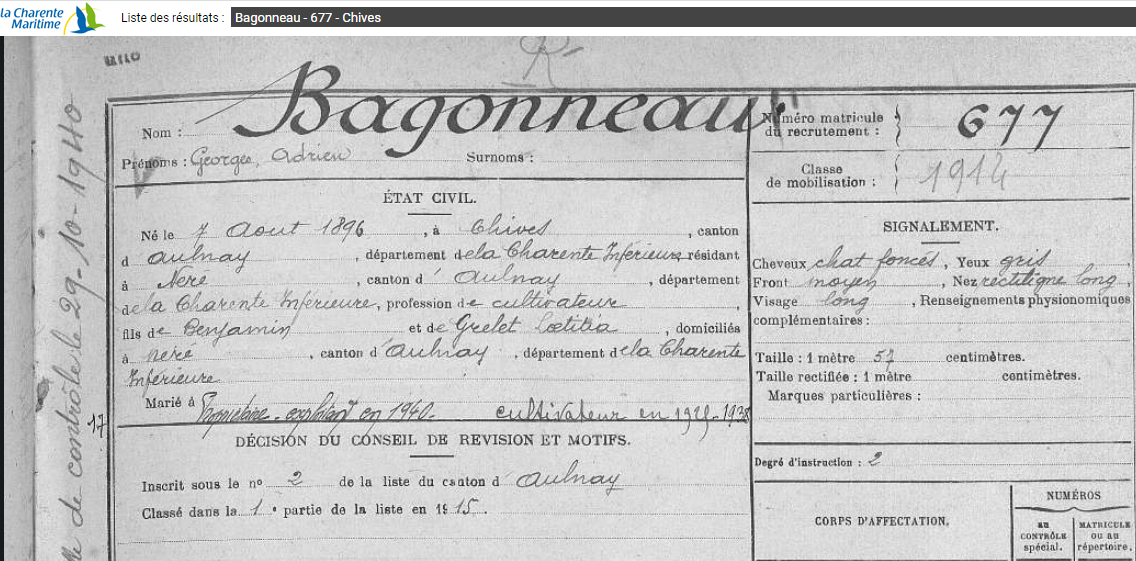 la Charente
Maritime
Liste des résultats : Bagonneau - 677 - Chives
Nom : Bagonneau
Prénoms : Georges, Adrien Surnoms :
Numéro matricule
du recrutement : 677
Classe
de mobilisation : 1914
ÉTAT CIVIL.
Né le 7 Aout 1896, à Chives, canton
d Aulnay, département de la Charente Inférieure résidant
à Neré, canton d' Aulnay, département
de la Charente Inférieure, profession de cultivateur
fils de Benjamin et de Grelet Lœtitia, domiciliés
à Neré, canton d'Aulnay, département de la Charente
Inférieure
Marié à Propriétaire exploitant en 1940 - cultivateur en 1925-1938
SIGNALEMENT.
Cheveux chat foncés, Yeux gris
Front moyen, Nez rectiligne long,
Visage long, Renseignements physionomiques
complémentaires :
Taille : 1 mètre 57 centimètres.
Taille rectifiée : 1 mètre centimètres.
Marques particulières :
Degré d'instruction : 2
DÉCISION DU CONSEIL DE REVISION ET MOTIFS.
Inscrit sous le no 2 de la liste du canton d' Aulnay
Classé dans la 1e partie de la liste en 1915.
CORPS D'AFFECTATION.
NUMÉROS
au
CONTRÔLE
spécial.
MATRICULE
ou au
répertoire.
de contrôle le 29-10-1940
17